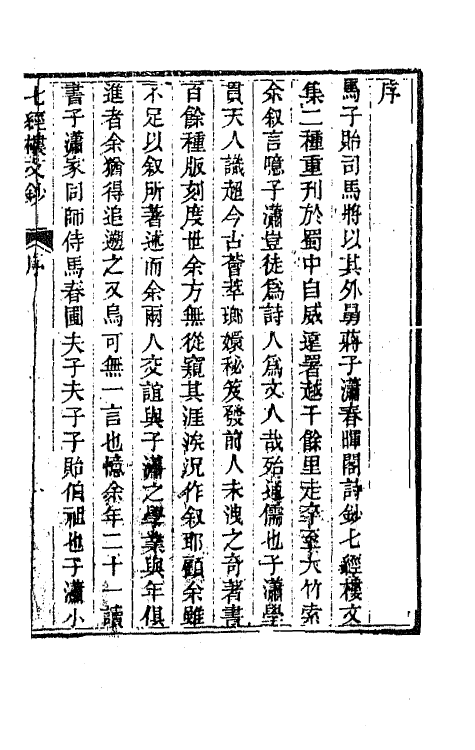 序
馬子貽司馬將以其外舅蔣子瀟春暉閣詩鈔七經樓文
集二種重刊於蜀中自威遠署越千餘里走卒至大竹索
余叙言噫子瀟豈徒爲詩人爲文人哉殆通儒也子瀟學
貫天人識超今古薈萃瑯嬛秘笈發前人未洩之奇著書
百餘種版刻度世余方無從窺其涯涘況作叙耶顧余雖
不足以叙所著述而余兩人交誼與子瀟之學業與年俱
進者余猶得追遡之又烏可無一言也憶余年二十一讀
書子瀟家同師侍馬春圃夫子夫子子貽伯祖也子瀟小
七經樓文鈔 序